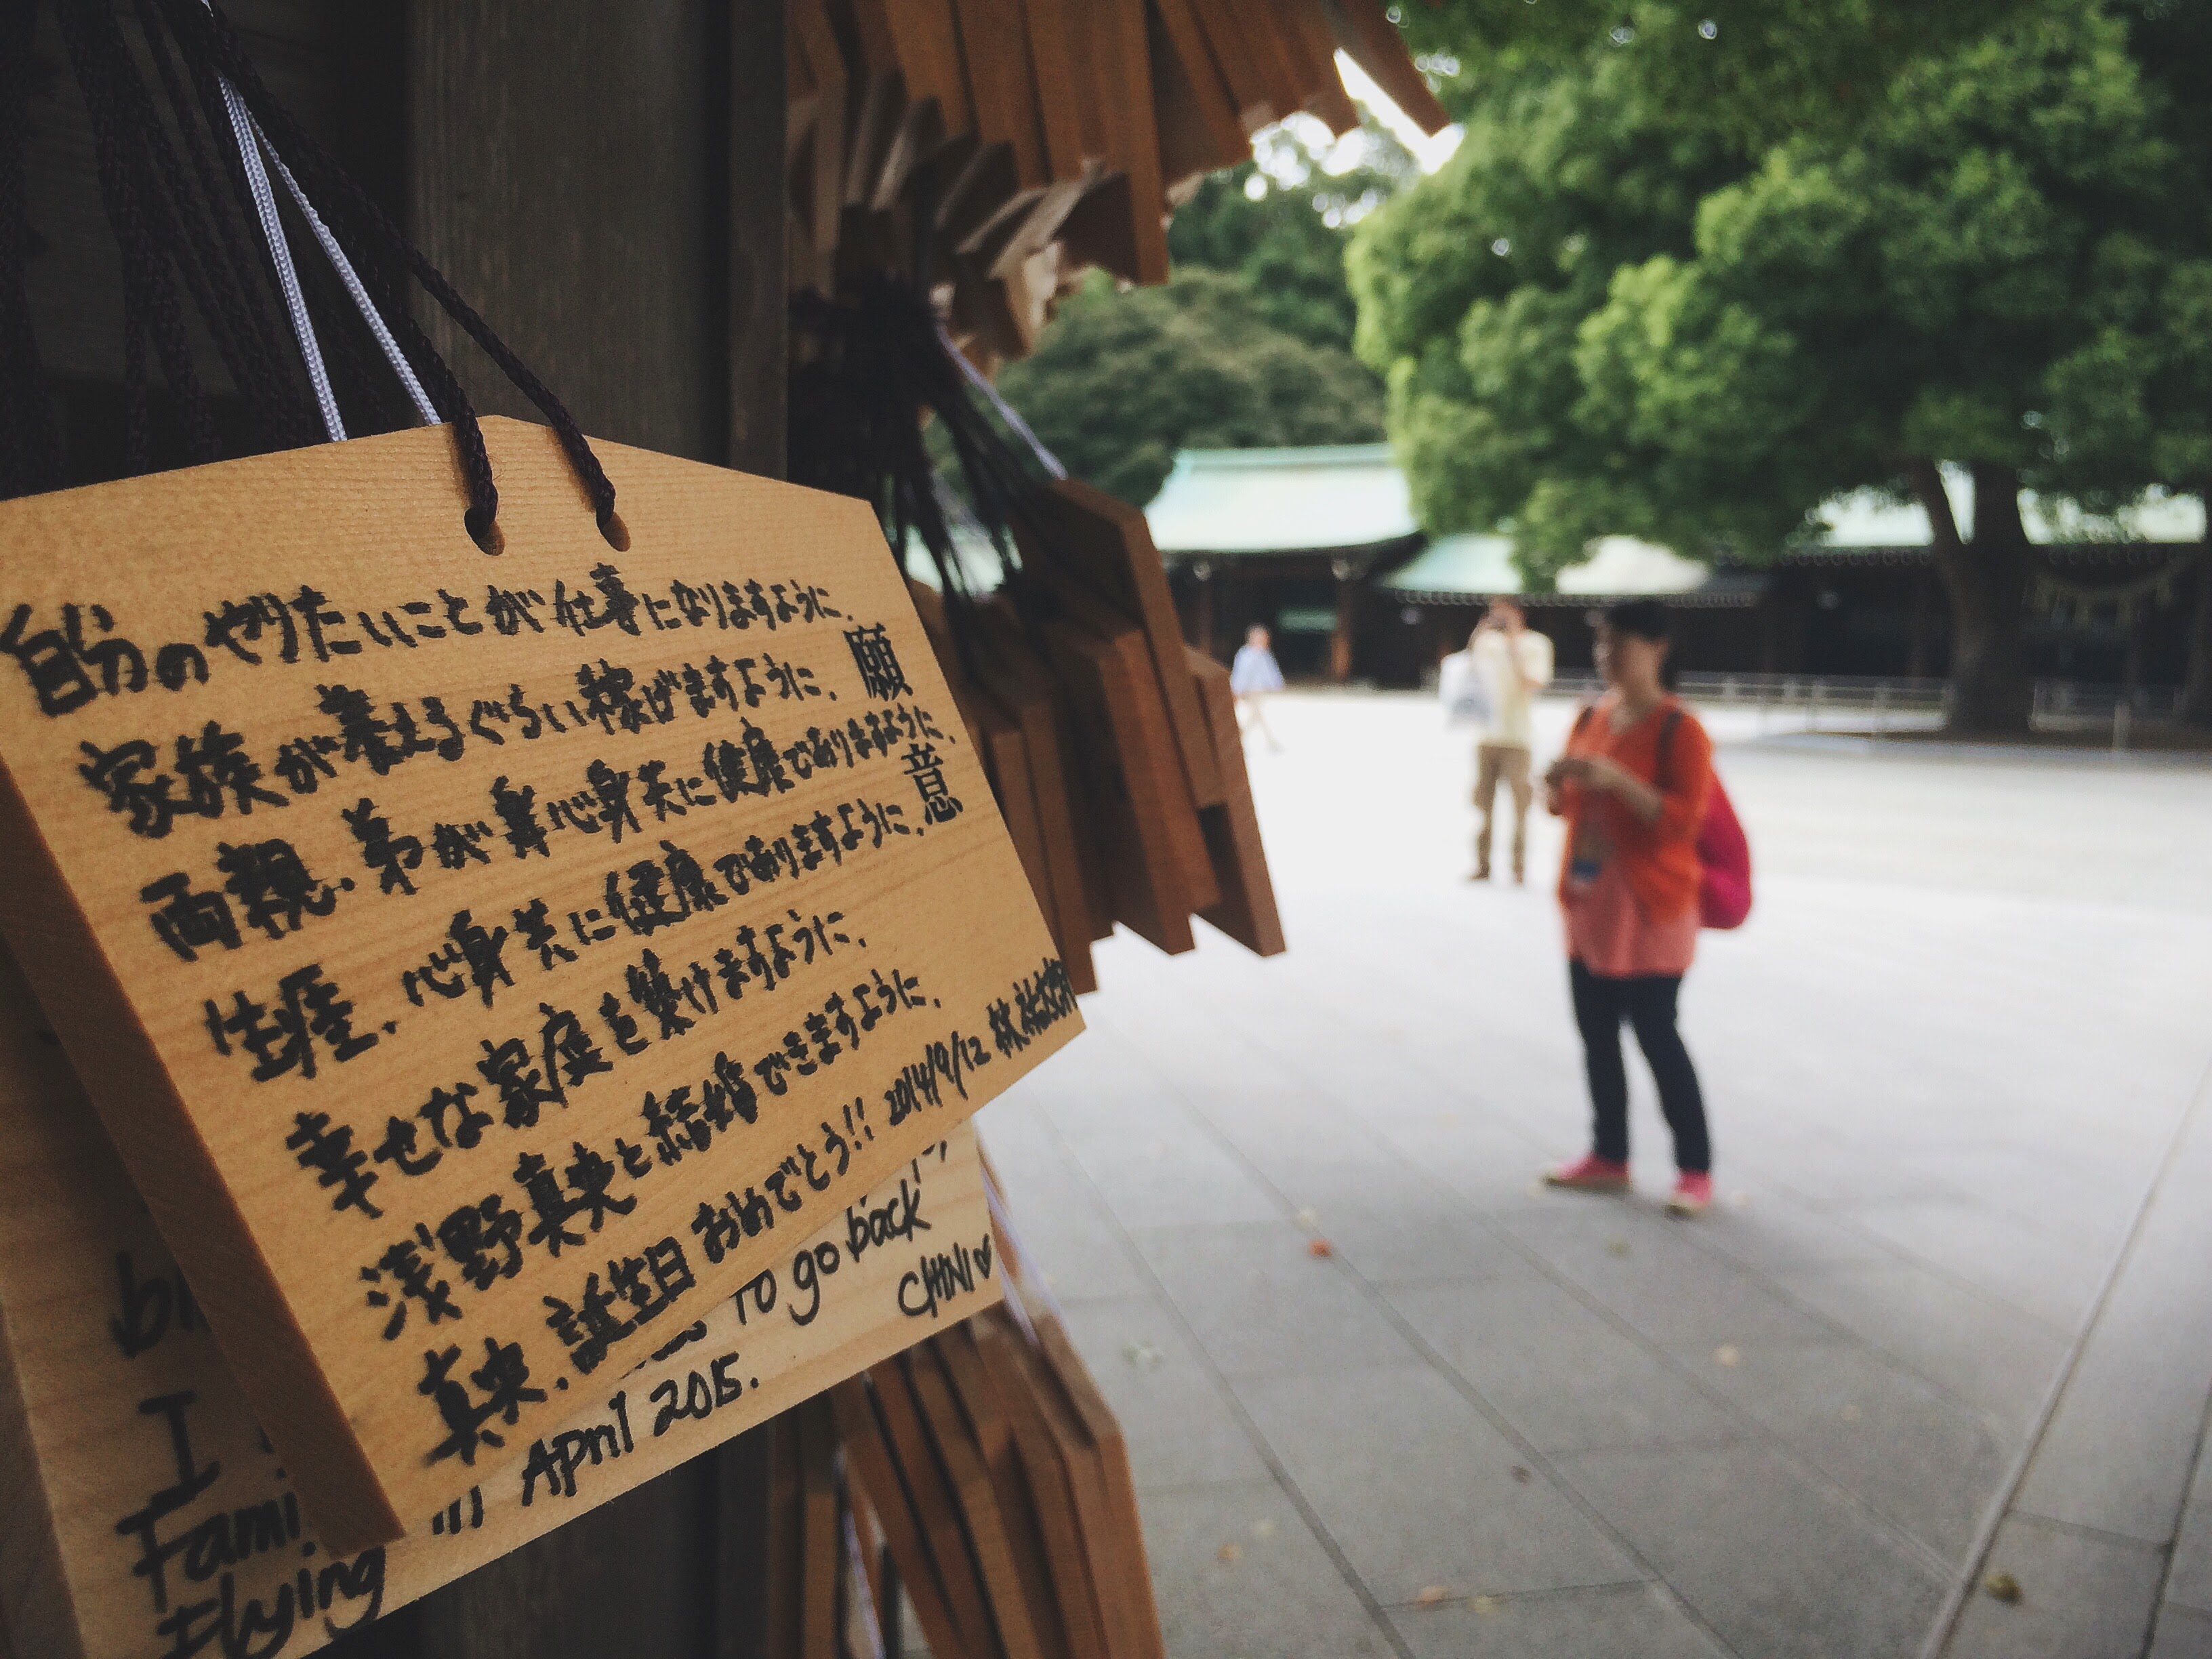 自分のやりたいことが仕事になりますように。
家族が養えるぐらい稼げますように。
両親、弟が心身共に健康でありますように。
生涯、心身共に健康でありますように。
幸せな家庭を築けますように。
浅野真央と結婚できますように。
真央、誕生日おめでとう!! 2014/9/12 林
願
意
To go back
CHINI♡
April 2015.
I
Fami
Flying